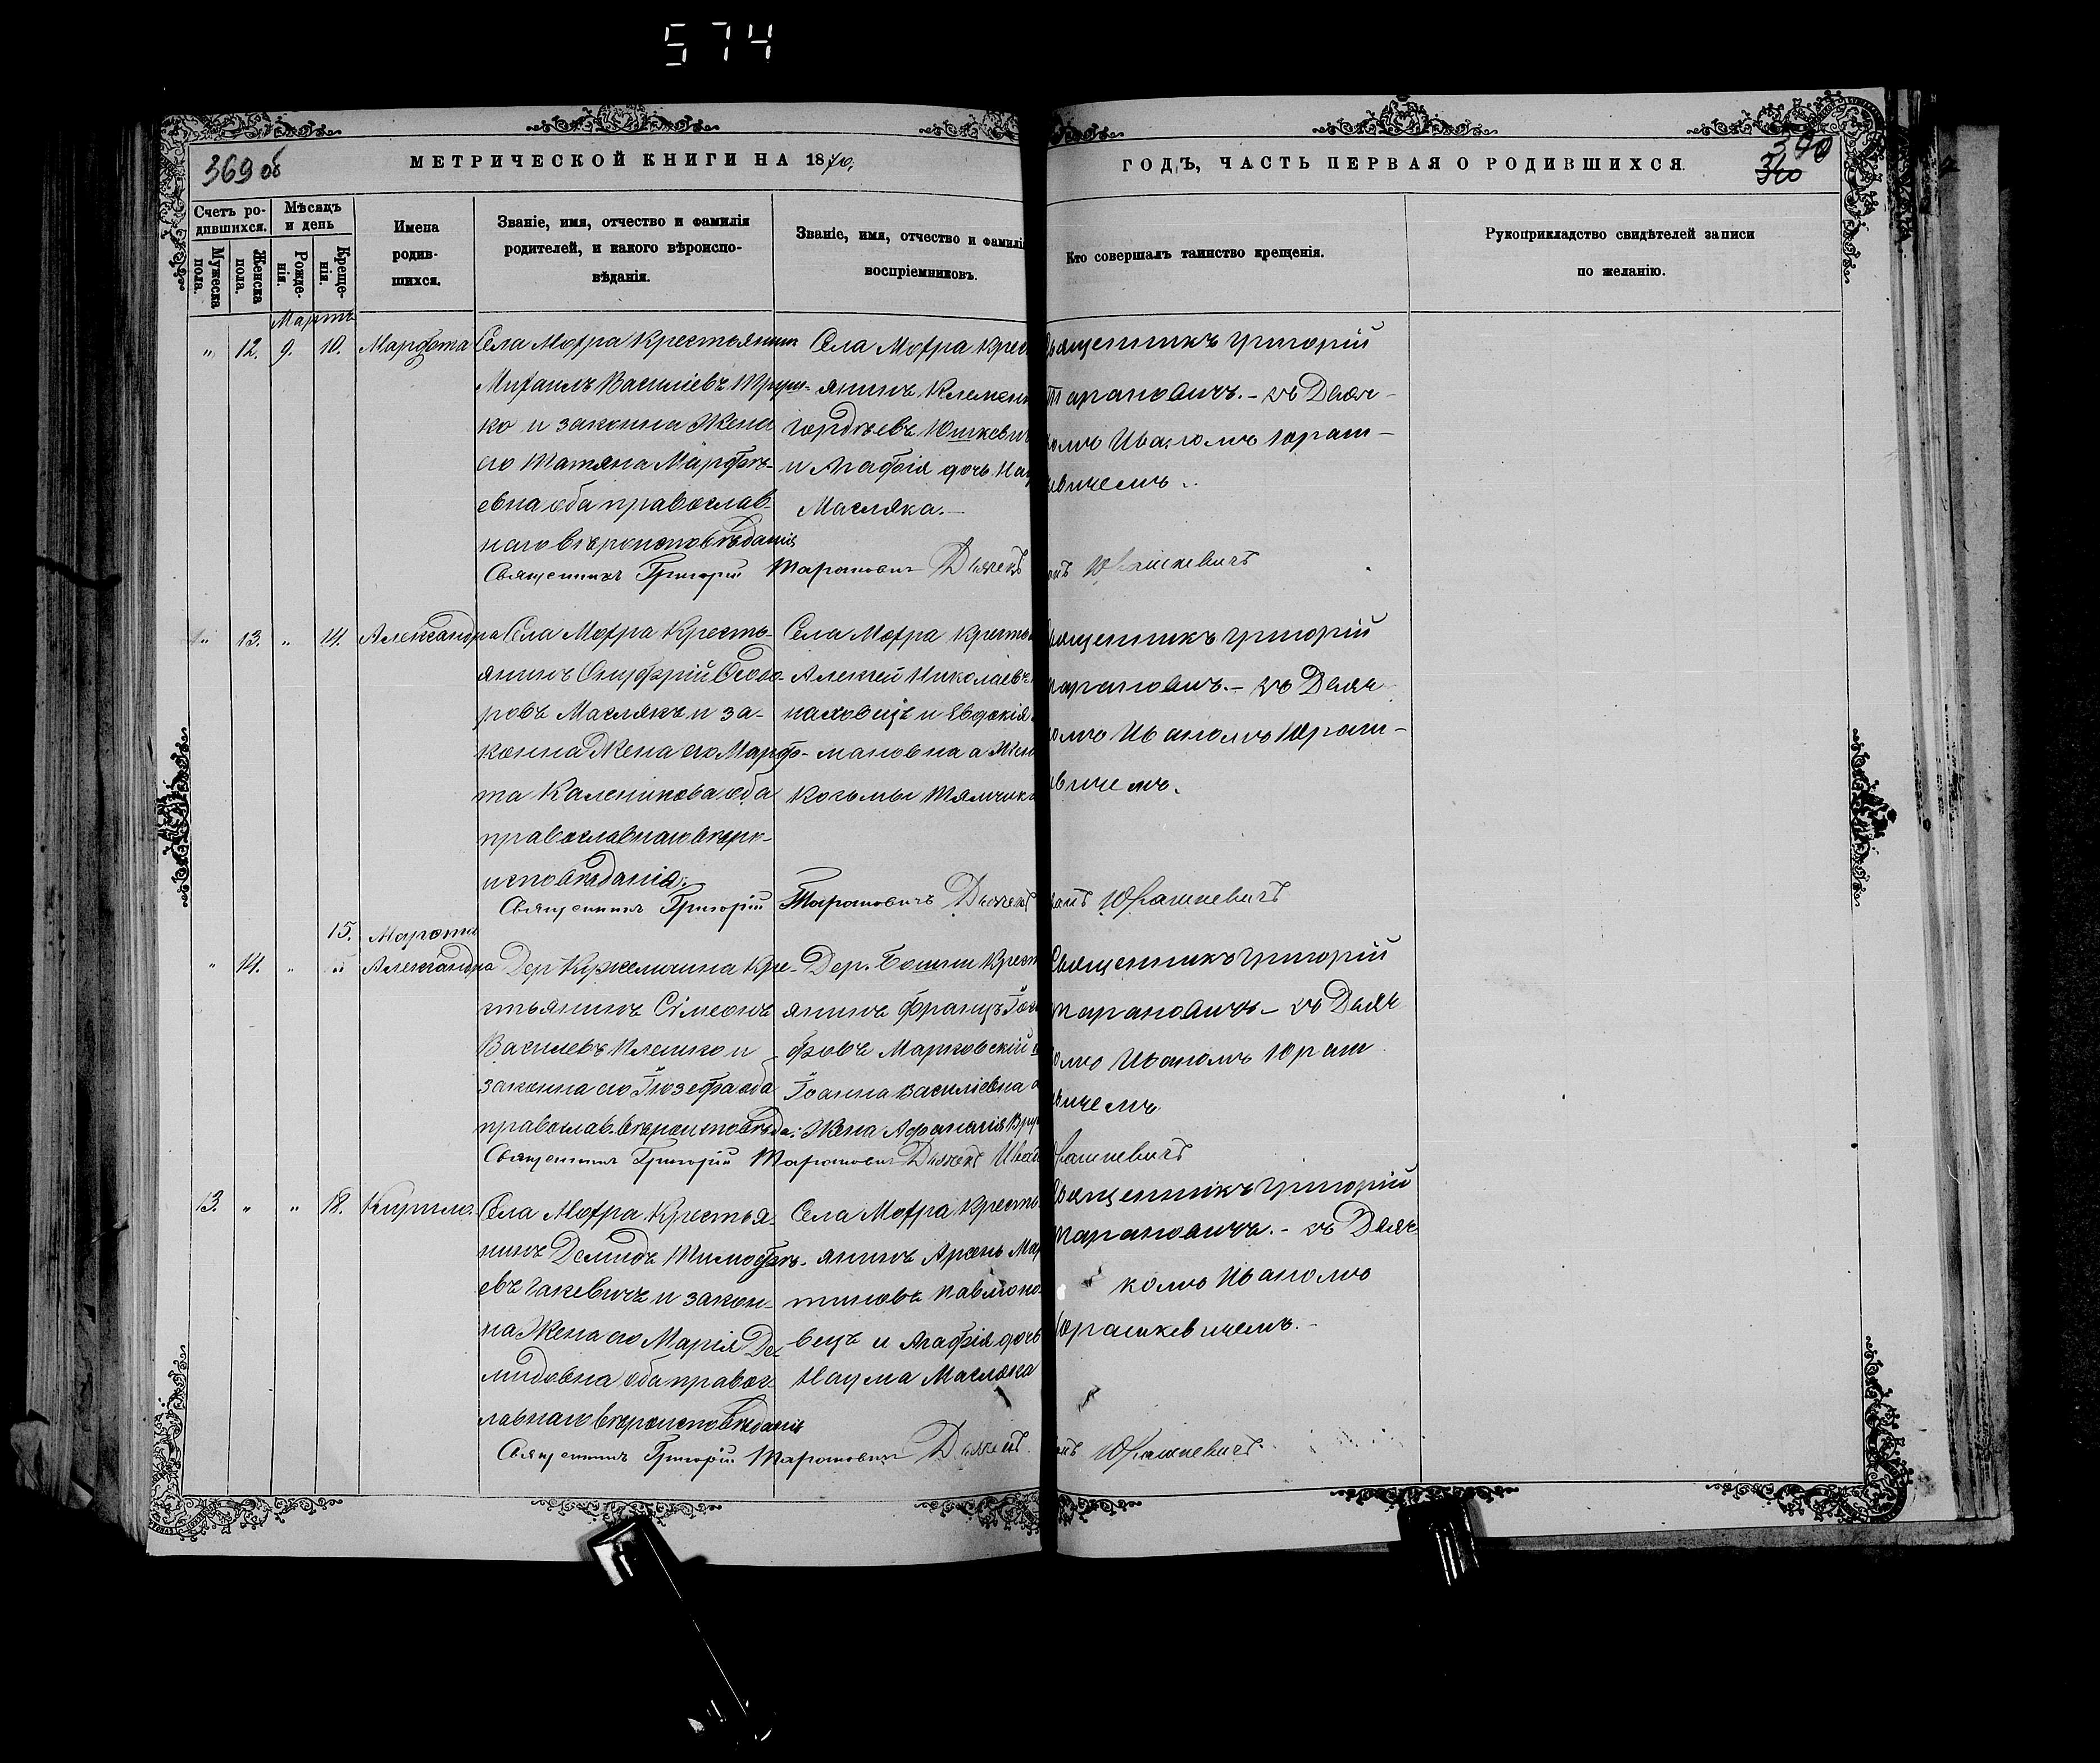 574
369 об
МЕТРИЧЕСКОЙ КНИГИ НА 1870,
ГОДЪ, ЧАСТЬ ПЕРВАЯ О РОДИВШИХСЯ.
370
Счетъ ро-
дившихся.
Мужеска
пола.
Женска
пола.
Мѣсяцъ
и день
Рожде-
нія.
Креще-
нія.
Имена
родив-
шихся.
Званіе, имя, отчество и фамилія
родителей, и какого вѣроиспо-
вѣданія.
Званіе, имя, отчество и фамилі
воспріемниковъ.
Кто совершалъ таинство крещенія.
Рукоприкладство свидѣтелей записи
по желанію.
Мартъ
" 12. 9. 10. Марфота
Села Мохра Крестьянин
Михаилъ Василіевъ
ко и законна Жена
его Татяна Марфѣ-
евна оба православ-
наго вѣроисповѣданія
Села Мохра Крес
янинъ Клемен
Гордѣевъ Юшкевич
и Агафія дочь На
Масляка.—
Священникъ Григорій
Тарановичъ.- съ Дьяч-
комъ Иваномъ Юраш-
евичемъ.
Священникъ Григорій Таранович Дьячекъ
Юрашкевичъ
" 13. " 14. Александра
Села Мохра Кресть-
янинъ Онуфрій Ѳедо-
ровъ Маслякъ и за-
конна Жена его Марфо-
та Каленикова оба
православнаго вѣро-
исповѣданія.
Села Мохра Кресть
Алексѣй Николаевъ
наховецъ и Евдокія
мановна а Жена
Козьмы
Священникъ Григорій
Тарановичъ.- съ Дьяч-
комъ Иваномъ Юраш-
евичемъ.
Священникъ Григорій Тарановичъ Дьячекъ
Юрашкевичъ
15. Марта
" 14. " " Александра
Дер Кужеличина Кре-
стьянинъ Сімеонъ
Василевъ Клешко и
законна его Іозефа оба
православ. вѣроисповѣда:
Дер. Крест
янинъ Францъ Іос
фовъ Марковскій и
Іоанна Василіевна
Жена Афанасія
Священникъ Григорій
Тарановичъ - съ Дьяч
комъ Иваномъ Юраш
евичемъ
Священникъ Григорій Таранович Дьячекъ Иван
Юрашкевичъ
13. " " 18. Кирило.
Села Мохра Крестья-
нинъ Демидъ Тимофѣ-
евъ Гакевичъ и закон-
на Жена его Марія Де-
мидовна оба правос-
лавнаго вѣроисповѣданія
Села Мохра Кресть
янинъ Арсень Мар
тиновъ Павлюко
вецъ и Агафія дочь
Наума Масляка
Священникъ Григорій
Тарановичъ.- съ Дьяч
комъ Иваномъ
Юрашкевичемъ.-
Священникъ Григорій Таранович Дьячекъ
Юрашкевичъ